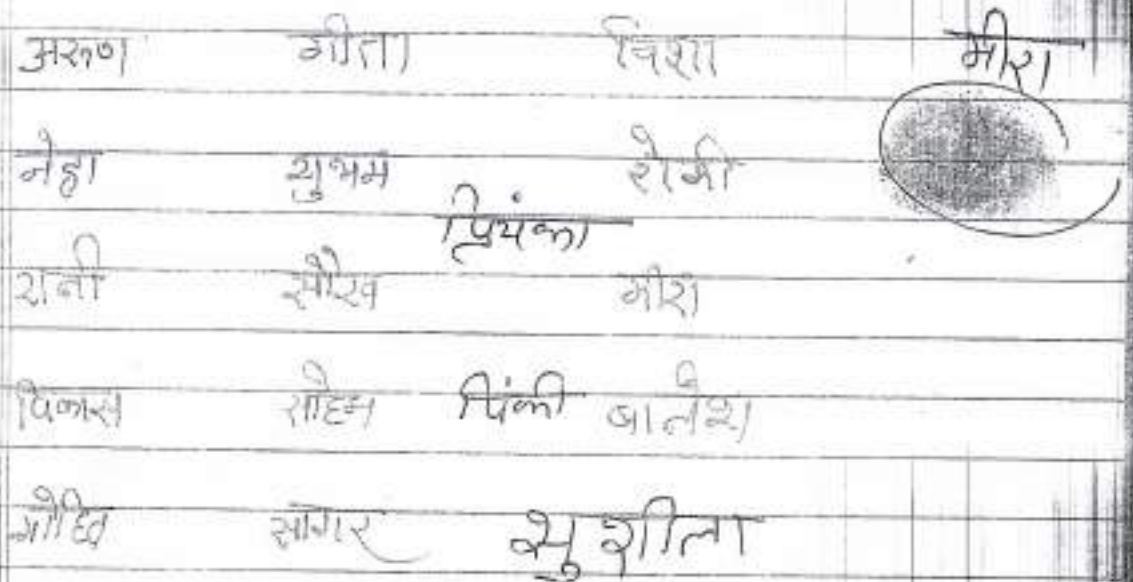 अरूण गीता विशा मीरा
नेहा शुभम रोकी
प्रियंका
रानी सौरव मीरा
विकास सोहन पिंकी बालेश
मोहित सागर सुशीला